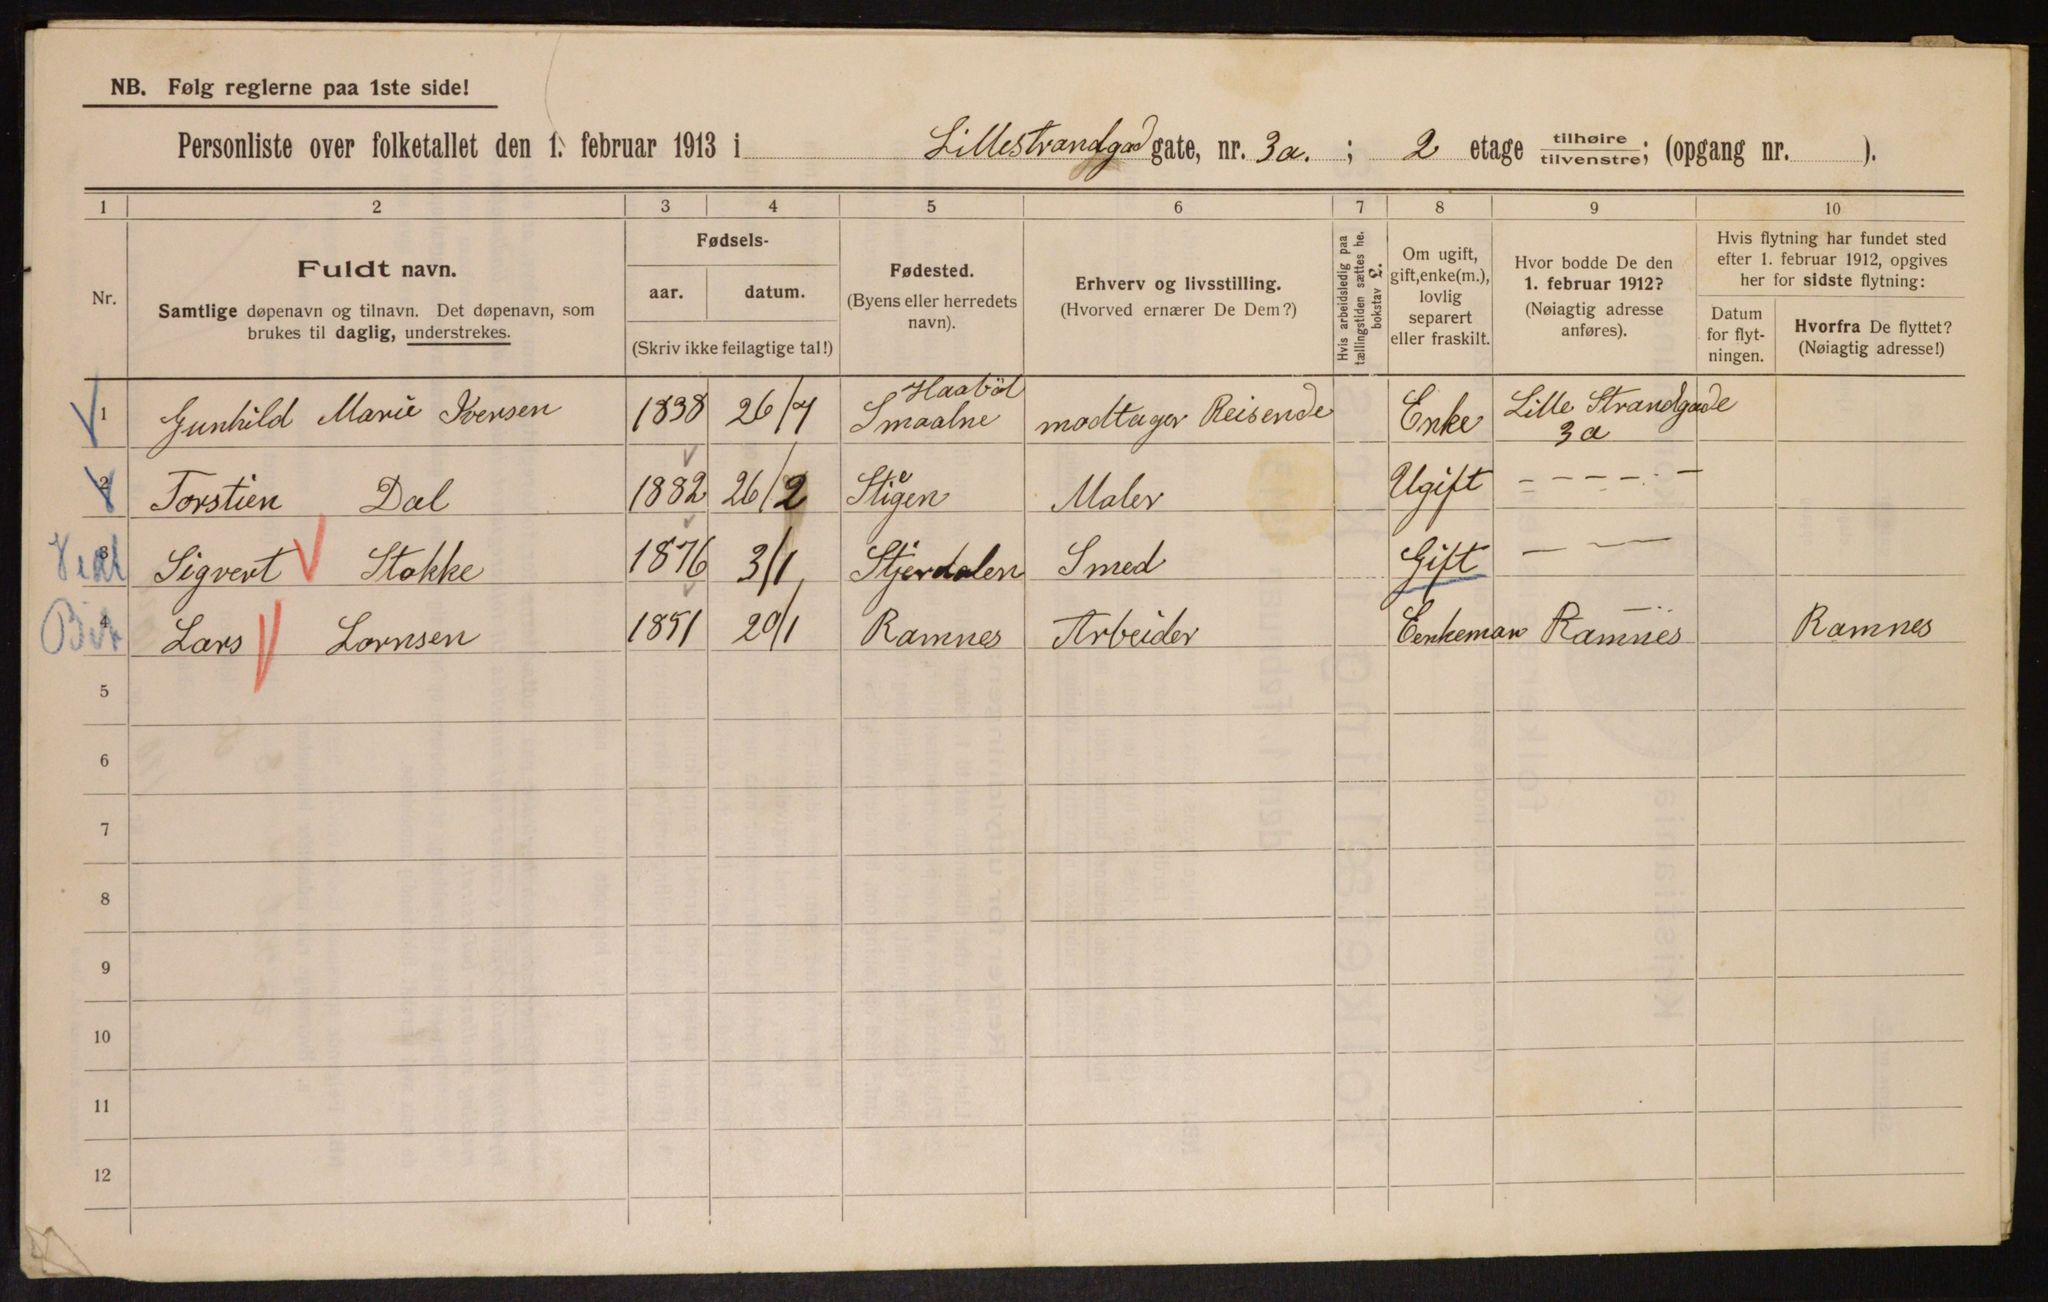 NB. Følg reglerne paa 1ste side!
Personliste over folketallet den 1. februar 1913 i Lillestrandgad gate, nr. 3a. ; 2 etage tilhøire/tilvenstre; (opgang nr. ).
1 2 3 4 5 6 7 8 9 10
Nr.
Fuldt navn.
Samtlige døpenavn og tilnavn. Det døpenavn, som
brukes til daglig, understrekes.
Fødsels-
aar. datum.
(Skriv ikke feilagtige tal!)
Fødested.
(Byens eller herredets
navn).
Erhverv og livsstilling.
(Hvorved ernærer De Dem?)
Hvis arbeidsledig paa
tællingstiden sættes her
bokstav L.
Om ugift,
gift, enke(m.),
lovlig
separert
eller fraskilt.
Hvor bodde De den
1. februar 1912?
(Nøiagtig adresse
anføres).
Hvis flytning har fundet sted
efter 1. februar 1912, opgives
her for sidste flytning:
Datum
for flyt-
ningen.
Hvorfra De flyttet?
(Nøiagtig adresse!)
Haaböl
1 Gunhild Marie Iversen 1838 26/7 Smaalne modtager Reisende Enke Lille Strandgade
3a
2 Torstien Dal 1882 26/2 Maler Ugift - - - - - -
3 Sigvert Stokke 1876 3/1 Stjerdalen Smed Gift - -
4 Lars Lornsen 1851 20/1 Ramnes Arbeider Eenkeman Ramnes Ramnes
5
6
7
8
9
10
11
12